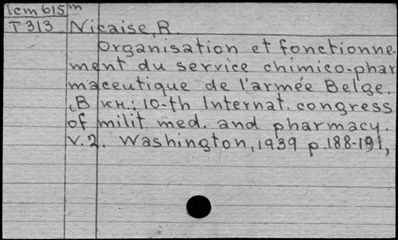 1cm615m
T313 Nicaise, R.
Organisation et fonctionne-
ment du service chimico-phar
maceutique de l'armée Belge.
,В кн.: 10-th Internat. congress
of milit med. and pharmacy.
v.2. Washington, 1939 p.188-191,